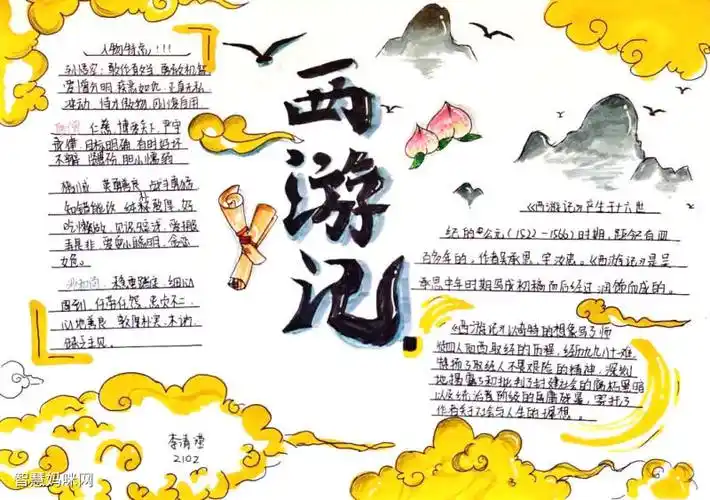 人物特点!!!
孙悟空:敢作有为 勇敢机智
爱憎分明 疾恶如仇 正直无私
冲动 恃才傲物 刚愎自用
仁慈 博爱天下 严守
戒律 目标明确 有时好坏
不辨 胆小懦弱
猪八戒 英勇善良 战斗勇猛
知错能改 纯朴敦厚 好
吃懒做 见识短浅 爱搬
弄是非 耍小聪明 贪恋
女色。
沙和尚 稳重踏实 细心
周到 任劳任怨 忠贞不二
心地善良 敦厚朴实 木讷
缺乏主见
西游记
《西游记》产生于十六世
纪的 公元(1522-1566)时期,距今有四
百多年的,作者吴承恩,字汝忠。《西游记》是吴
承恩中年时期写成初稿而后经过 润饰而成的。
《西游记》以奇特的想象写了师
徒四人西西取经的历程,经历九九八十一难
赞扬了取经人不畏艰险的精神,深刻
地揭露了和批判了封建社会的腐朽黑暗
以及统治者阶级的昏庸残暴,寄托了
作者关于社会与人生的理想。
李清
2102
智慧妈咪网